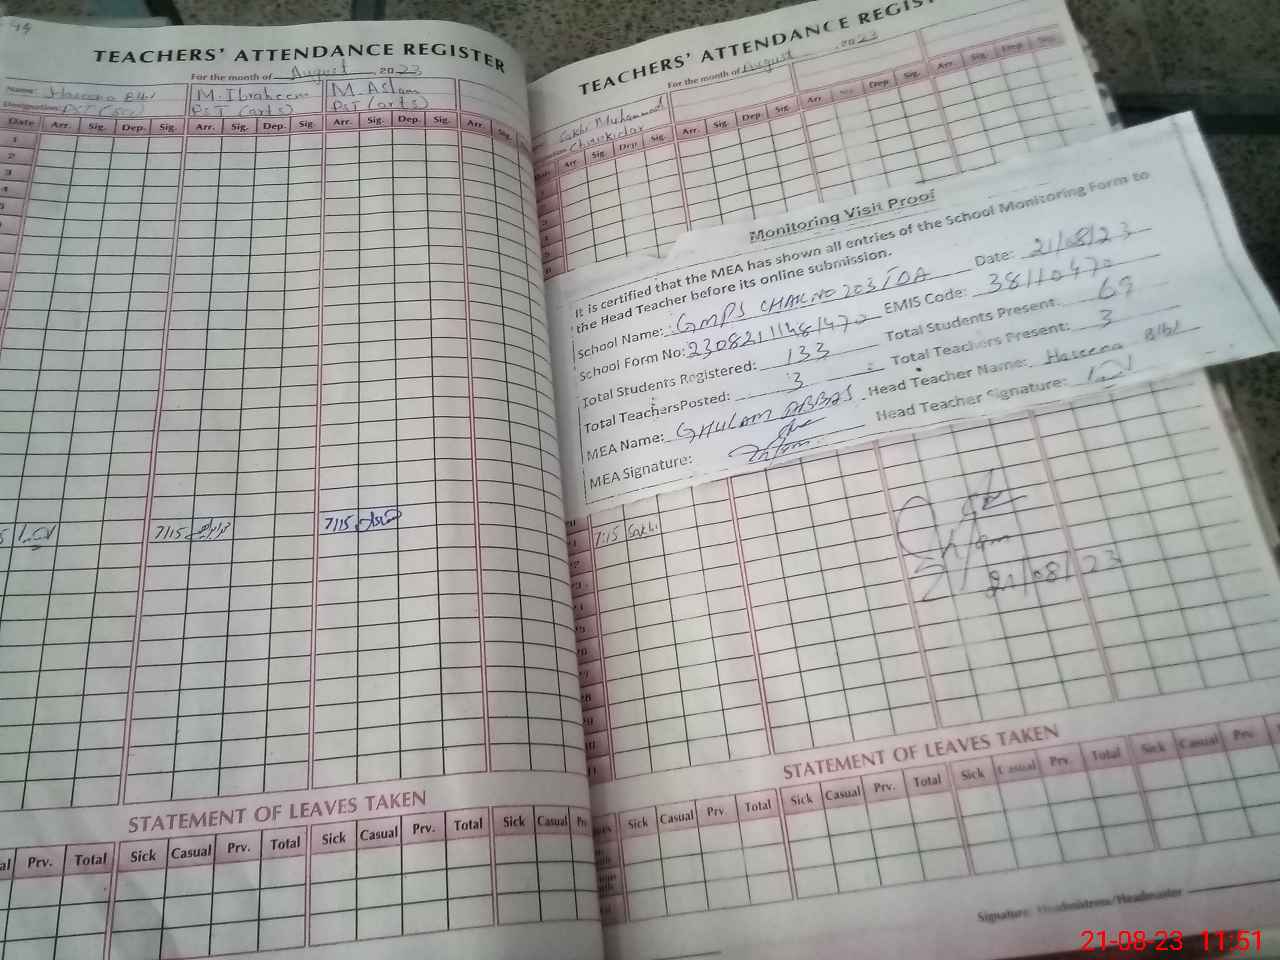 TEACHERS' ATTENDANCE REGISTER
For the month of August, 2023
Name: Haseena Bibi M. Ibraheem M. Aslam
Designation: PST (arts) PST (arts)
Date Arr. Sig. Dep. Sig. Arr. Sig. Dep. Sig. Arr. Sig. Dep. Sig. Arr. Sig.
1
2
3
4
7/15 7/15
STATEMENT OF LEAVES TAKEN
Prv. Total Sick Casual Prv. Total Sick Casual Prv. Total Sick Casual
TEACHERS' ATTENDANCE REGIS
For the month of August, 2023
Sakhi Muhammad
Chowkidar
Arr. Sig. Dep. Sig. Arr. Sig. Dep. Sig. Arr. Sig. Dep. Sig. Arr. Sig. Dep. Sig.
Monitoring Visit Proof
It is certified that the MEA has shown all entries of the School Monitoring Form to
the Head Teacher before its online submission.
School Name: GMPS CHAK NO 203 TDA Date: 21/08/23
School Form No: EMIS Code: 38110470
Total Students Registered: 133 Total Students Present: 69
Total Teachers Posted: 3 Total Teachers Present: 3
MEA Name: GHULAM ABBAS Head Teacher Name: Haseena Bibi
MEA Signature: Head Teacher Signature:
7:15 Sakhi
21/08/23
STATEMENT OF LEAVES TAKEN
Sick Casual Prv Total Sick Casual Prv. Total Sick Casual Prv. Total Sick Casual Prv.
Signature: Headmistress/Headmaster
21-08-23 11:51